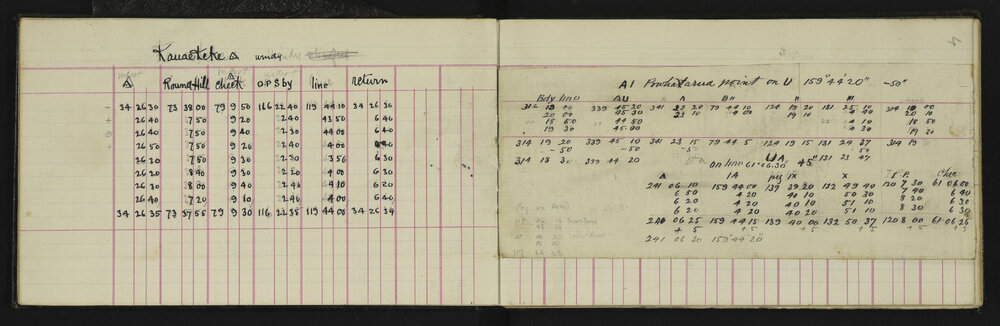 Kauaeteke △ windy
△ Round Hill check △ OPS by line return
34 26 30 73 38 00 79 9 50 116 22 40 119 44 10 34 26 30
26 40 37 50 9 20 22 40 43 50 6 40
26 40 7 50 9 40 2 30 44 00 6 40
26 50 7 50 9 20 2 40 44 00 6 40
26 20 7 50 9 30 2 30 3 50 6 30
26 20 8 40 9 30 2 20 44 00 6 30
26 30 8 00 9 40 2 40 4 10 6 30
26 40 7 20 9 10 2 40 4 00 6 40
34 26 35 73 37 55 79 9 30 116 22 35 119 44 00 34 26 34
4
A1 point on U 159° 44' 20" -50"
Bdy line AU A B" 19 1X 111
314 19 00 339 45 20 341 23 20 79 44 10 124 19 20 131 25 10 314 19 00
20 00 45 30 23 10 4 00 19 10 4 40 20 10
18 50 44 50 4 10 18 50
19 30 45 00 4 30 19 20
314 19 20 339 45 10 341 23 15 79 44 5 124 19 15 131 24 37 314 19
-50 -50 -50
314 18 30 339 44 20 on line 61° 06' 30" UA 45" 131 23 47
△ 1A peg 1X X I P. Chec
241 06 10 159 44 00 139 39 20 132 49 40 120 7 30 61 06 00
6 50 4 20 40 10 50 30 7 40 6 40
6 20 4 20 40 10 51 10 8 20 6 30
6 20 4 20 40 20 51 10 8 30 6 30
241 06 25 159 44 15 139 40 00 132 50 37 120 8 00 61 06 25
+5 +5 +5 +5 +5 +5
241 06 30 159° 44' 20"